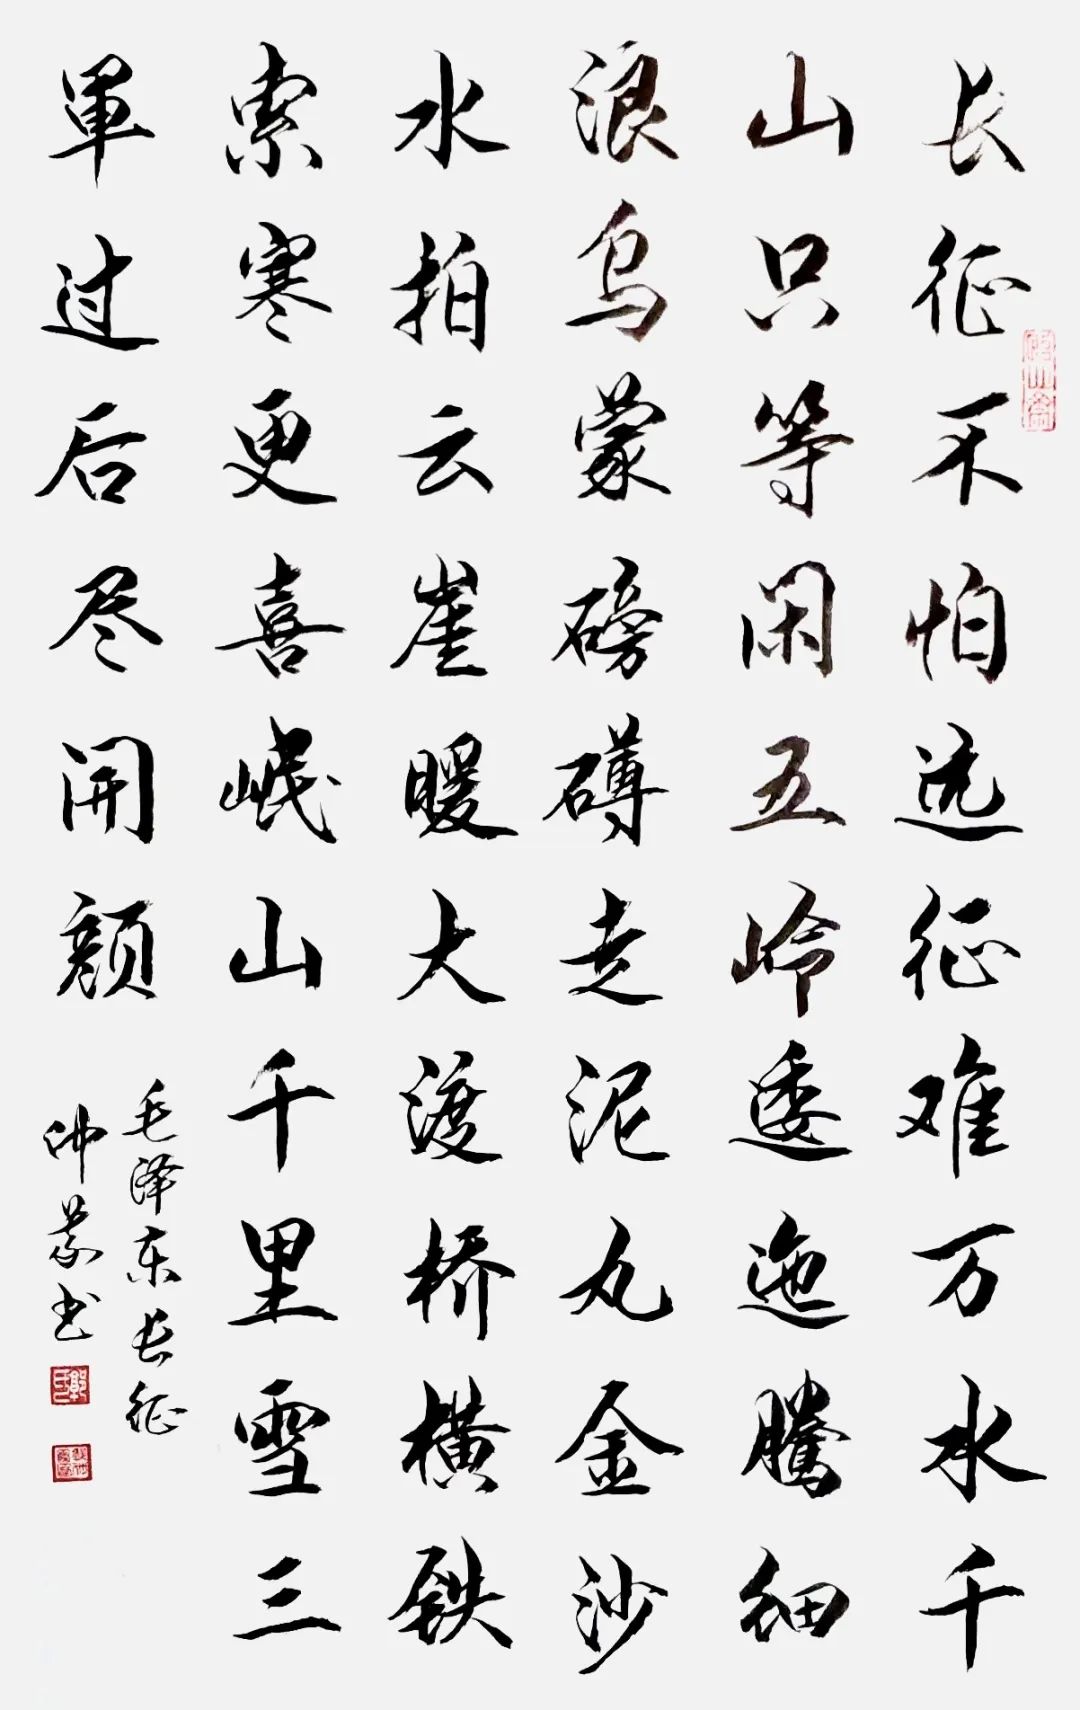 长征不怕远征难万水千
山只等闲五岭逶迤腾细
浪乌蒙磅礴走泥丸金沙
水拍云崖暖大渡桥横铁
索寒更喜岷山千里雪三
軍过后尽開颜
毛泽东长征
书